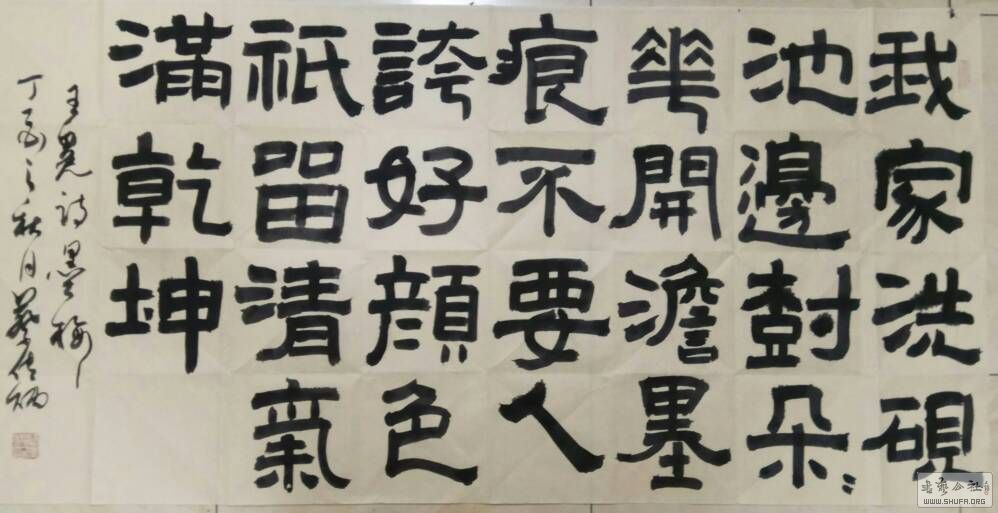 我家洗硯
池邊樹朵〻
華開澹墨
痕不要人
誇好顏色
祇畱清氣
滿乾坤
王冕詩墨梅
丁酉之秋月蔡
书艺公社
WWW.SHUFA.ORG